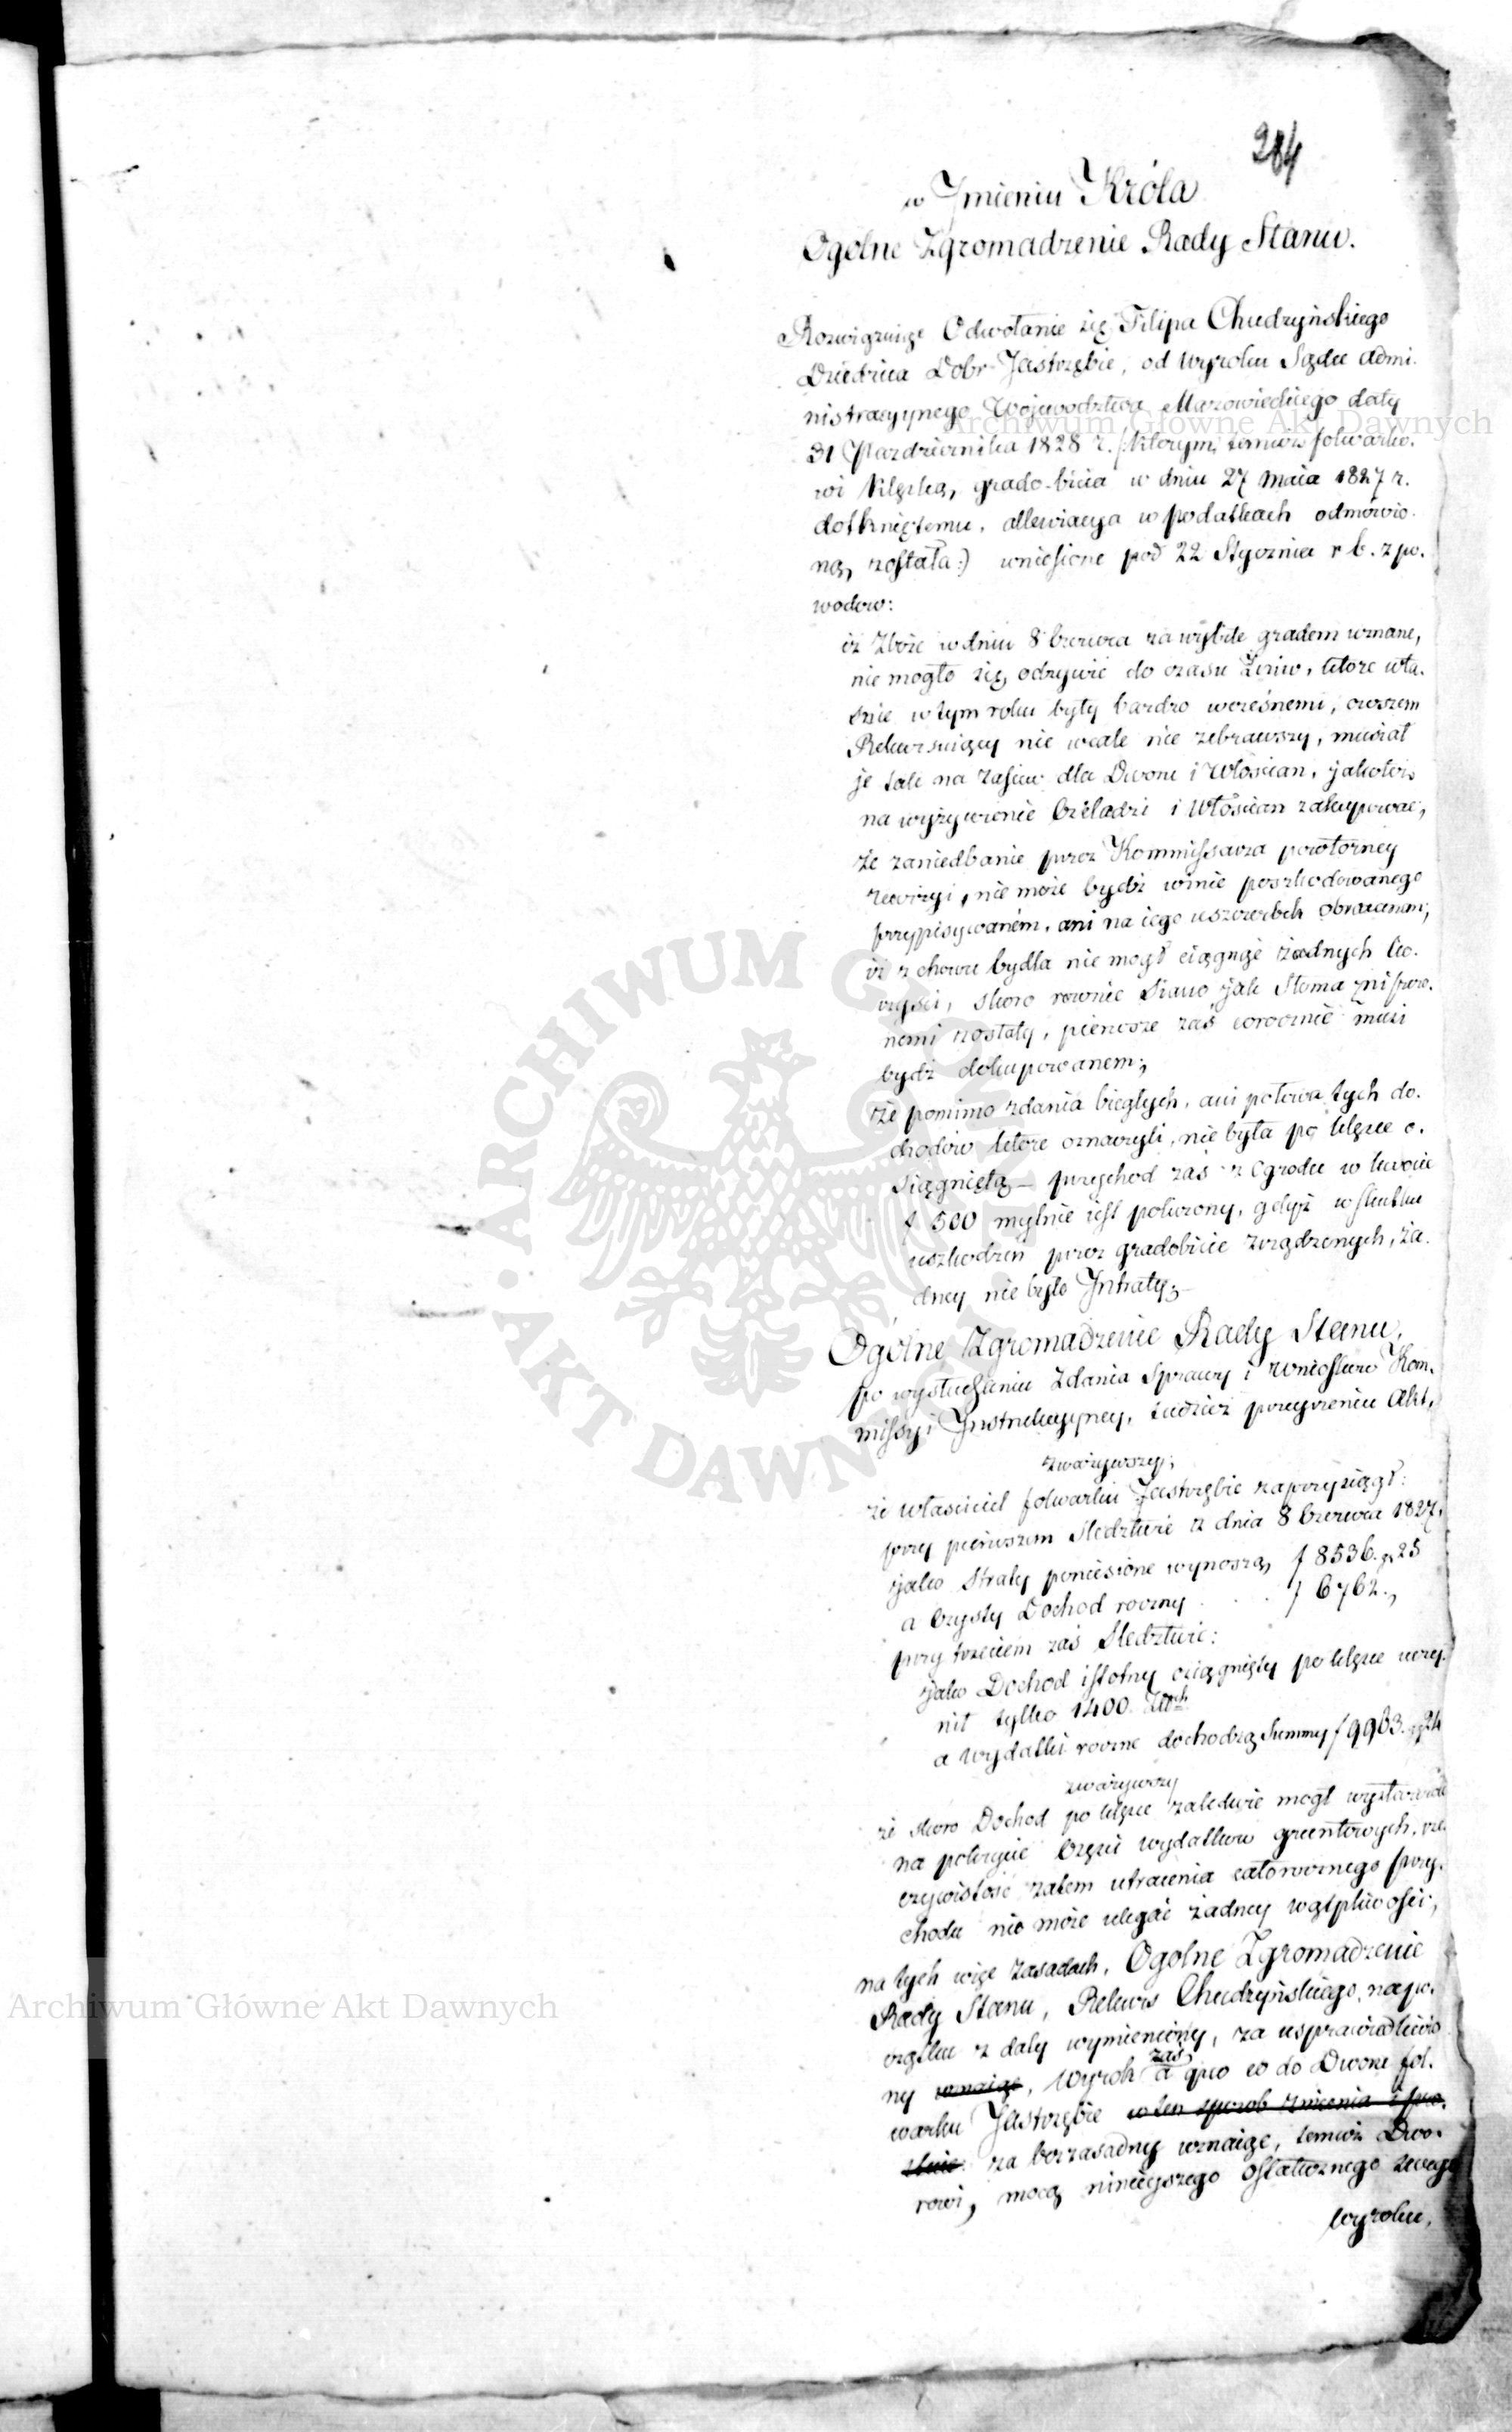 284
w Jmieniu Króla
Ogolne Zgromadzenie Rady Stanu.
Rozwiązuiąc Odwołanie się Filipa Chudzyńskiego
Dziedzica Dobr Jastrzębie, od Wyroku Sądu Admi-
nistracyynego Woiewodztwa Mazowieckiego daty
31 Pazdziernika 1828 r. (:którym, temuż folwarko-
wi klęską, grado-bicia w dniu 27 Maia 1827 r.
dotkniętemu, allewiacya w podatkach odmówio-
ną, została:) wniesione pod 22 Stycznia r b. z po-
wodow:
iż Zboże w dniu 8 Czerwca za wybite gradem uznane,
nie mogło się odżywić do czasu Żniw, które wła-
śnie w tym roku były bardzo wcześnemi, owszem
Rekursuiący nic wcale nie zebrawszy, musiał
je tak na zasiew dla Dworu i Włościan, jakoteż
na wyżywienie Czeladzi i Włościan zakupować;
że zaniedbanie przez Kommissarza powtorney
rewizyi, nie może bydź winie poszkodowanego
przypisywaném, ani na iego uszczerbek obracanem;
iż z chowu bydła nie mogł ciągnąć żadnych ko-
rzyści, skoro rownie Siano jak Słoma zniszczo-
nemi zostały, pierwsze zaś corocznie musi
bydź dokupowanem;
że pomimo zdania biegłych, ani połowa tych do-
chodów które oznaczyli, nie była po klęsce o-
siągniętą — przychod zaś z Ogrodu w kwocie
f 500 mylnie iest policzony, gdyż w skutku
uszkodzeń przez gradobicie zrządzonych, ża-
dney nie było Jntraty;—
Ogólne Zgromadzenie Rady Stanu,
po wysłuchaniu Zdania Sprawy i wniosków Kom-
missyi Jnstrukcyyney, tudzież przeyrzeniu Akt,
zważywszy;
że właściciel folwarku Jastrzębie zaprzysiągł:
przy pierwszem Śledztwie z dnia 8 Czerwca 1827,
jako Straty poniesione wynoszą, f 8536. gr 25
a Czysty Dochod roczny . . . f 6762.,
przy trzeciem zaś Śledztwie:
jako Dochod istotny osiągnięty po klęsce uczy-
nił tylko 1400. Złch
a Wydatki roczne dochodzą Summy f 9933. gr 24
zważywszy
że skoro Dochod po klęsce zaledwie mogł wystarczać
na pokrycie Części wydatkow gruntowych, rze-
czywistość zatem utracenia całorocznego przy-
chodu nie może ulegać żadney wątpliwości;
na tych więc zasadach, Ogolne Zgromadzenie
Rady Stanu, Rekurs Chudzyńskiego, na po-
czątku z daty wymieniony, za usprawiedliwio
ny uznaiąc, Wyrok zaś a quo co do Dworu fol-
warku Jastrzębie w ten sposob zmienia i po-
za bezzasadny uznaiąc, temuż Dwo-
rowi, mocą ninieyszego ostatecznego swego
Wyroku,
Archiwum Główne Akt Dawnych
Archiwum Główne Akt Dawnych
ARCHIWUM GŁÓWNE · AKT DAWNYCH ·